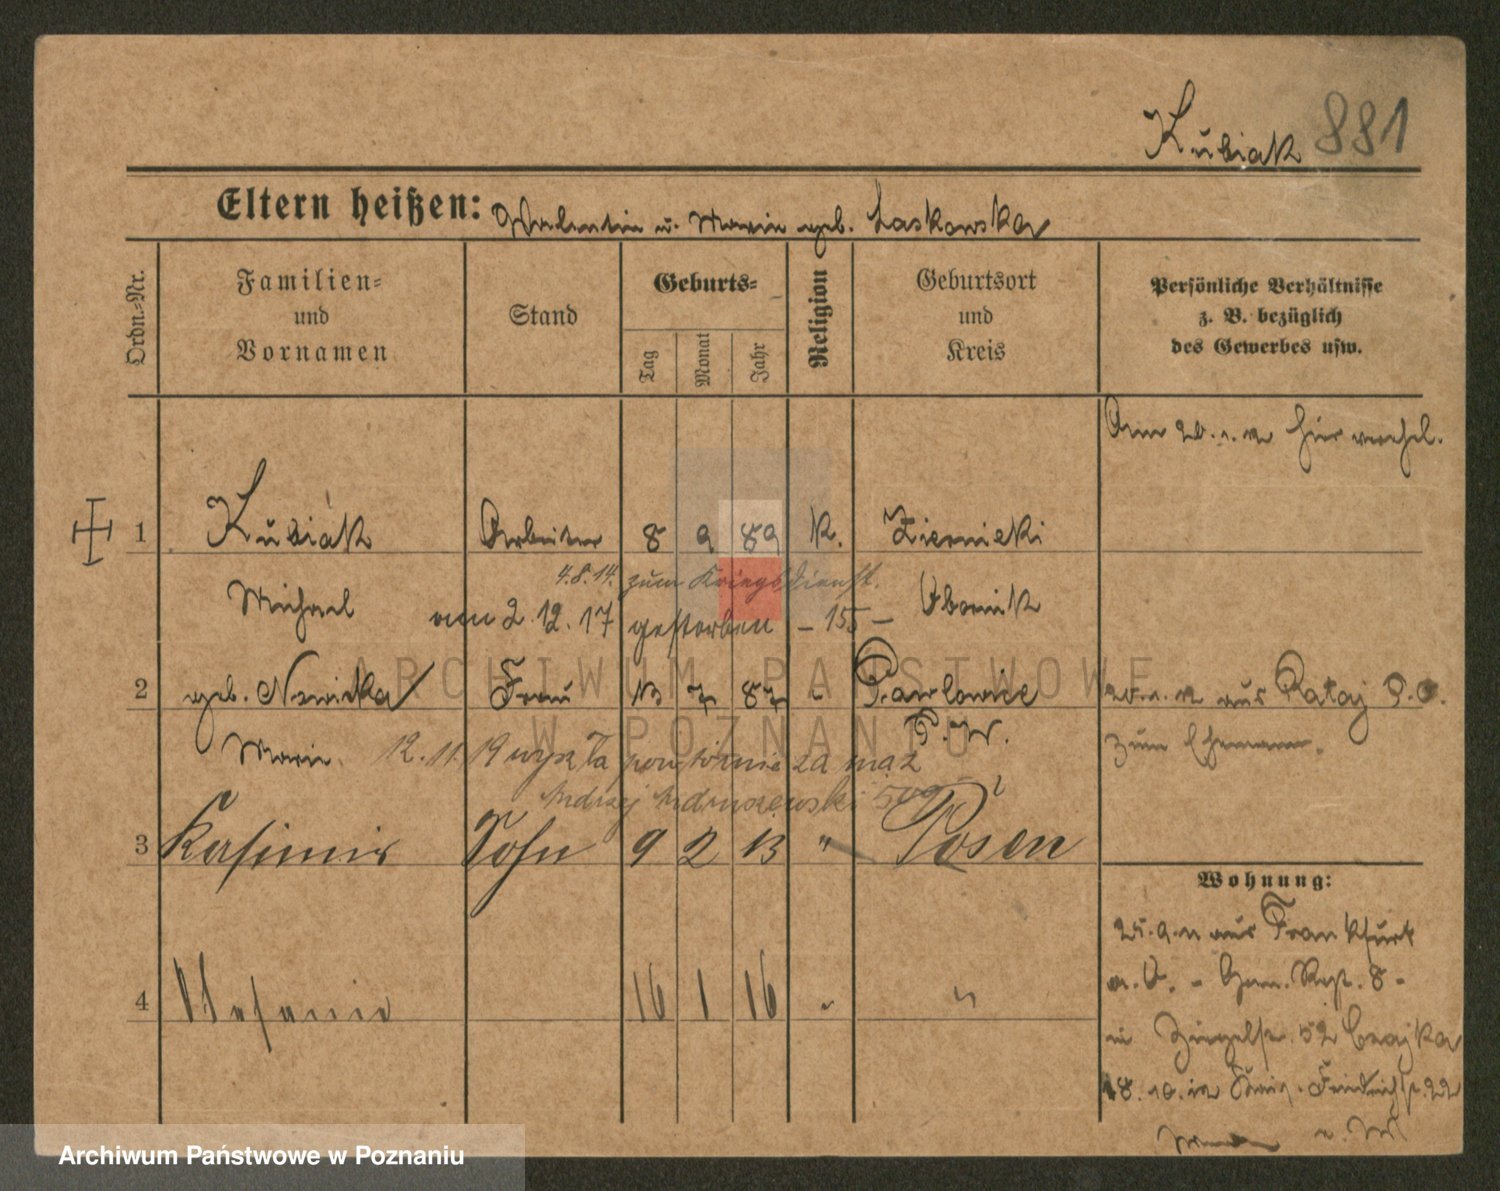 Kubiak 881
Eltern heißen: Valentin u. Marie geb. Laskowska
Ordn.-Nr.
Familien-
und
Vornamen
Stand
Geburts-
Tag
Monat
Jahr
Religion
Geburtsort
und
Kreis
Persönliche Verhältnisse
z. B. bezüglich
des Gewerbes usw.
Am 20. 1. 12 hier verehel.
1 Kubiak Arbeiter 8 9 89 K. Ziernicki
4.8.14. zum Kriegsdienst.
Michael Obornik
am 2.12.17 gestorben – 155 –
2 geb. Nowicka Frau 13 7 87 " Pawlowice
aus Rataj P.O.
Marie P. W.
zum Ehemann.
12.11.19 wyszła powtórnie za mąż
Andrzej Andruszewski
3 Kasimir Sohn 9 2 13 " Posen
Wohnung:
25.9.11 aus Frankfurt
a. O. - Gren. Rgt. 8 -
4 Stefanie 16 1 16 " "
in 52
18.10.12 22
ARCHIWUM PAŃSTWOWE
W POZNANIU
Archiwum Państwowe w Poznaniu